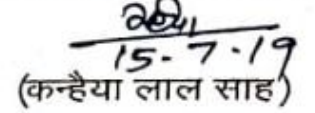 15-7-19
(कन्हैया लाल साह)